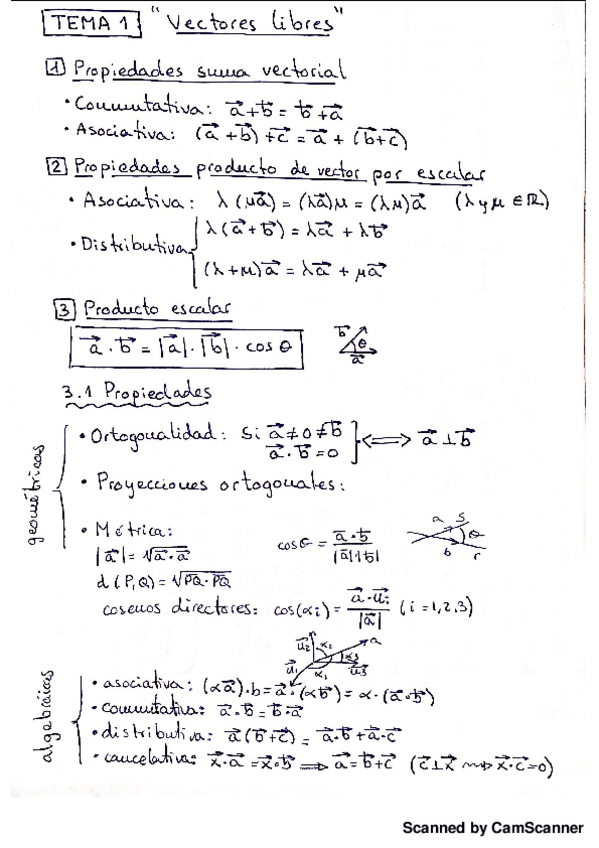 TEMA 1 "Vectores libres"
1 Propiedades suma vectorial
• Conmutativa: a⃗+b⃗ = b⃗+a⃗
• Asociativa: (a⃗+b⃗)+c⃗ = a⃗+(b⃗+c⃗)
2 Propiedades producto de vector por escalar
• Asociativa: λ(μa⃗) = (λa⃗)μ = (λμ)a⃗ (λ y μ ∈ ℝ)
• Distributiva
λ(a⃗+b⃗) = λa⃗ + λb⃗
(λ+μ)a⃗ = λa⃗ + μa⃗
3 Producto escalar
a⃗ · b⃗ = |a⃗| · |b⃗| · cos θ
b⃗ θ
a⃗
3.1 Propiedades
geométricas
• Ortogonalidad: Si a⃗ ≠ 0 ≠ b⃗
a⃗ · b⃗ = 0 ⟺ a⃗ ⊥ b⃗
• Proyecciones ortogonales:
• Métrica:
|a⃗| = √a⃗·a⃗ cos θ = a⃗·b⃗ / |a⃗||b⃗|
a s θ
b r
d(P,Q) = √PQ⃗·PQ⃗
cosenos directores: cos(αi) = a⃗·u⃗i / |a⃗| (i = 1,2,3)
u⃗2 α2 a
u⃗1 α1 α3 u⃗3
algebráicas
• asociativa: (αa⃗)·b = a⃗·(αb⃗) = α·(a⃗·b⃗)
• conmutativa: a⃗·b⃗ = b⃗·a⃗
• distributiva: a⃗(b⃗+c⃗) = a⃗·b⃗+a⃗·c⃗
• cancelativa: x⃗·a⃗ = x⃗·b⃗ ⟹ a⃗ = b⃗+c⃗ (c⃗⊥x⃗ ⇝ x⃗·c⃗=0)
Scanned by CamScanner